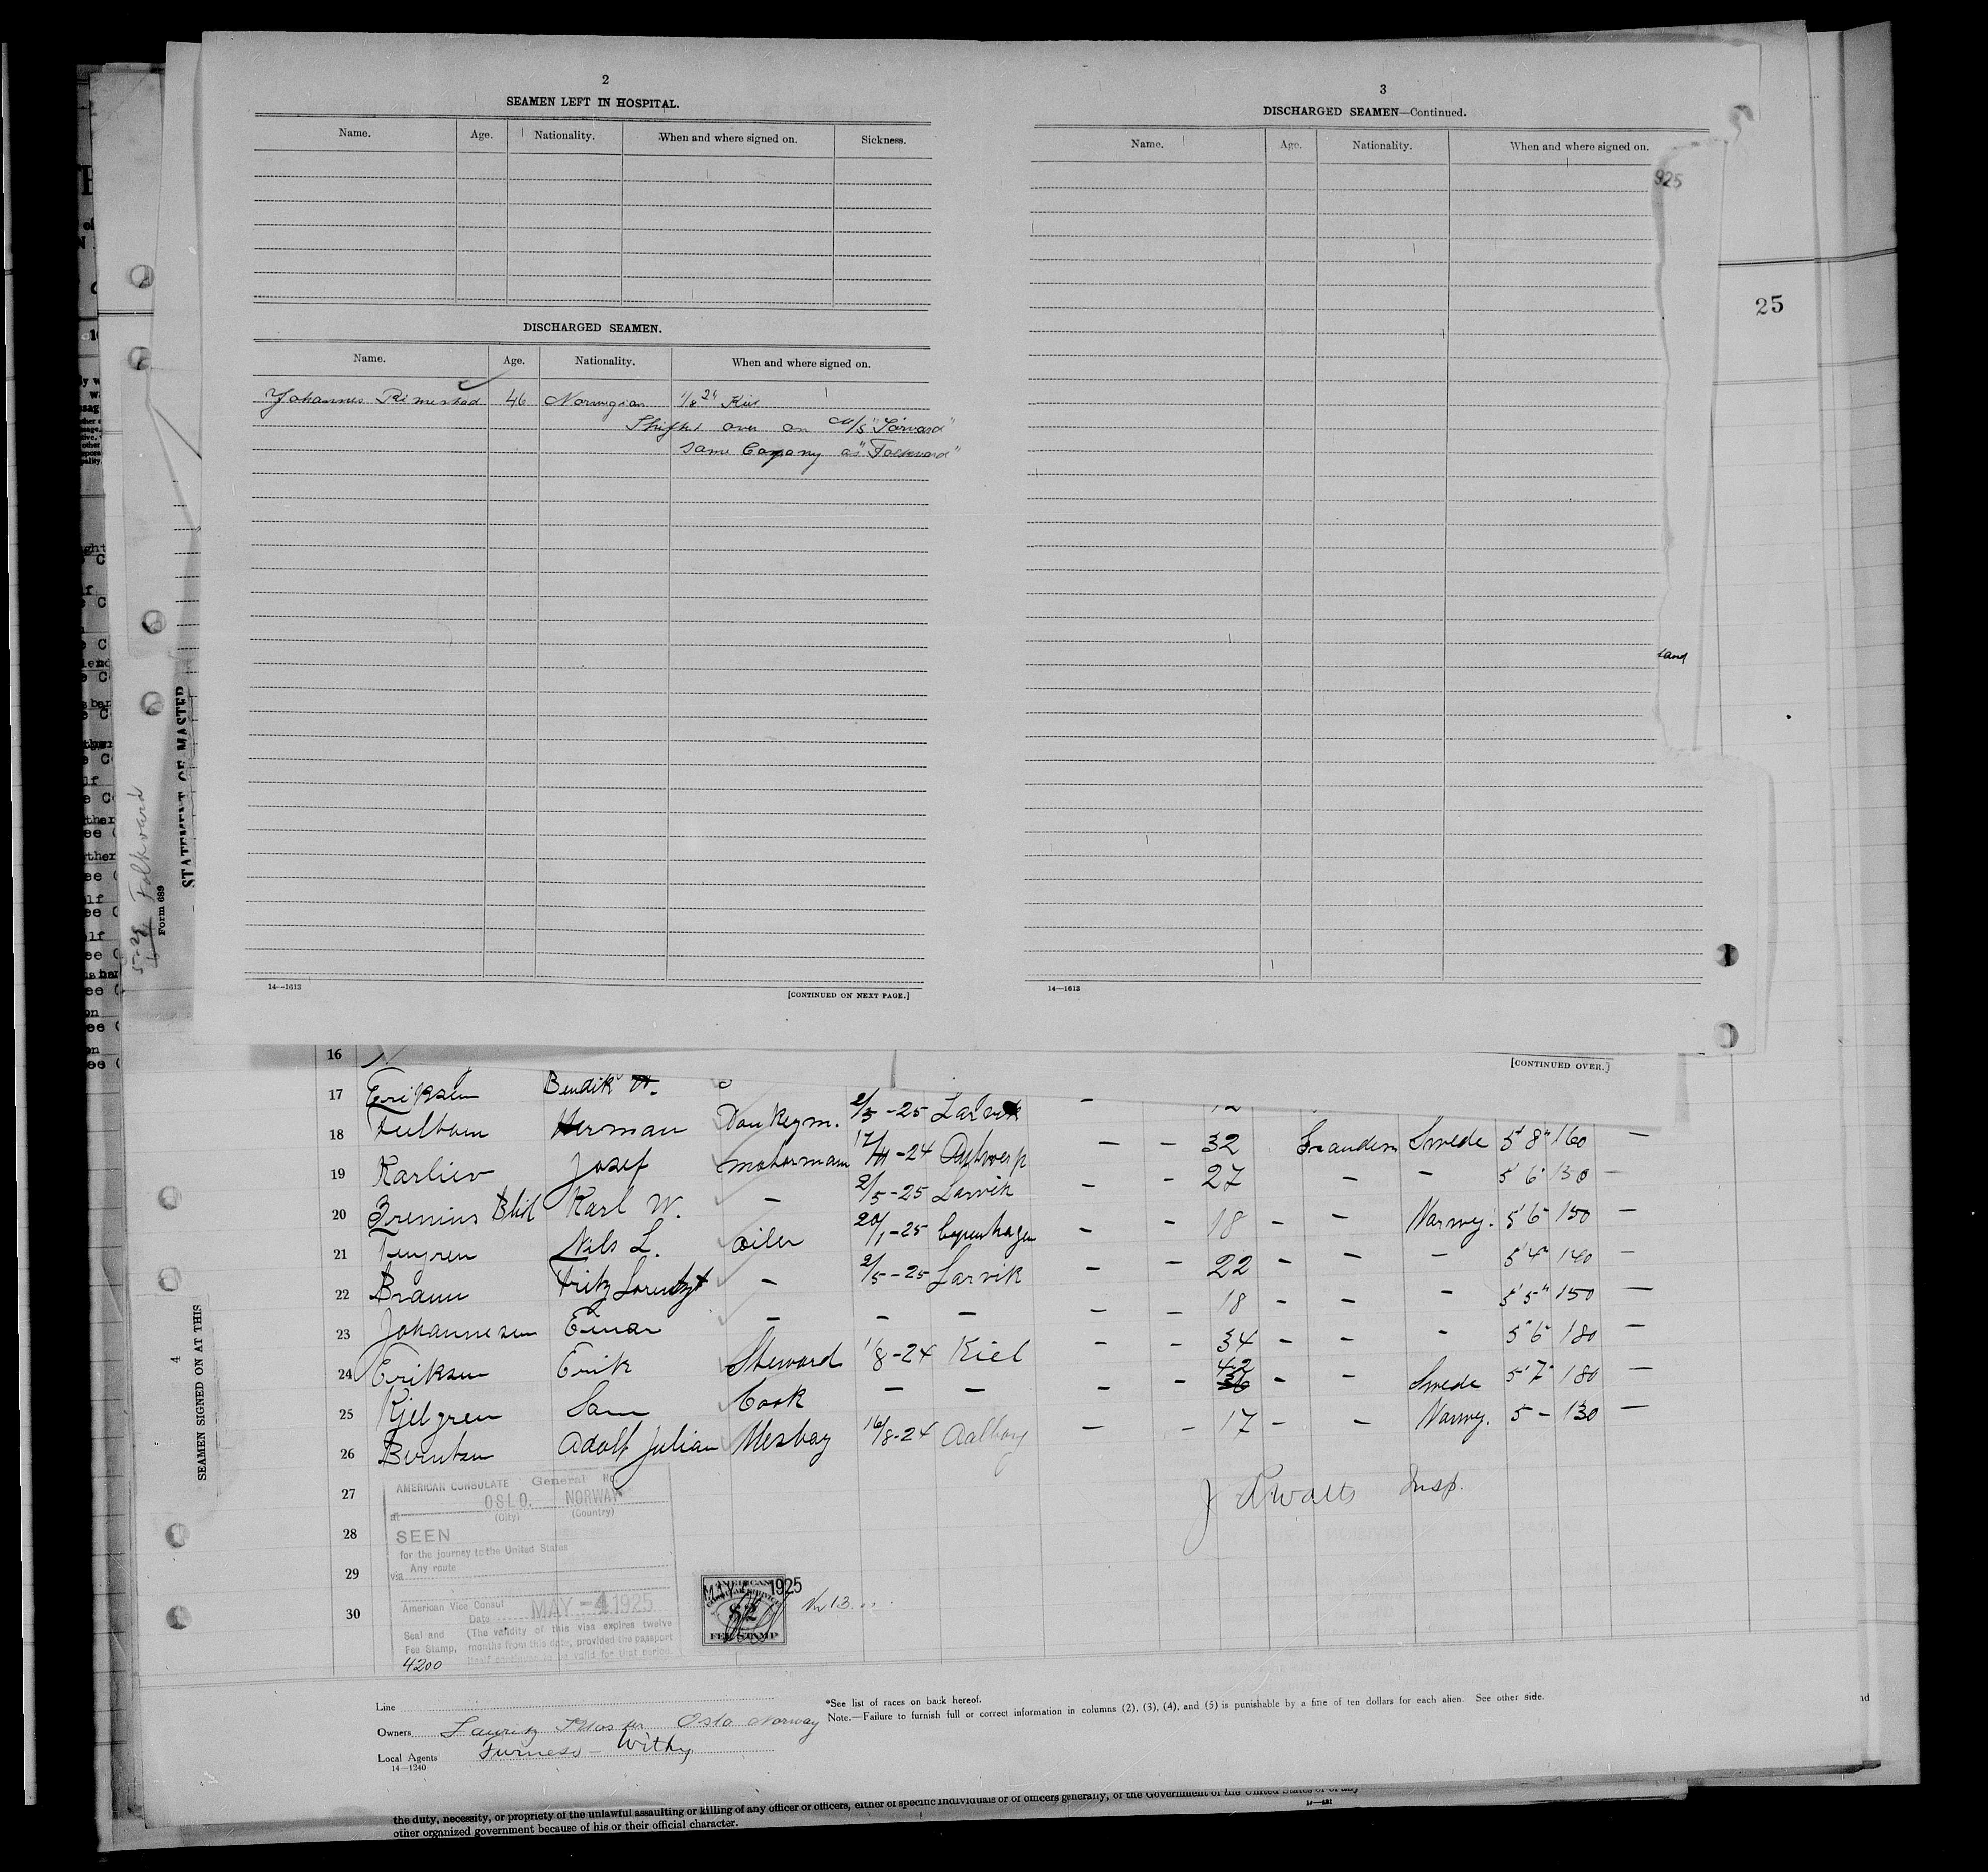 2
SEAMEN LEFT IN HOSPITAL.
Name. Age. Nationality. When and where signed on. Sickness.
DISCHARGED SEAMEN.
Name. Age. Nationality. When and where signed on.
Johannes Rimestad 46 Norwegian 1/8 24 Kiel
over on M/S
same as "Folkvard"
14—1613
[CONTINUED ON NEXT PAGE.]
3
DISCHARGED SEAMEN—Continued.
Name. Age. Nationality. When and where signed on.
14—1613
925
25
land
STATEMENT OF MASTER
Form 689
Folkvard
[CONTINUED OVER.]
4
SEAMEN SIGNED ON AT THIS
16
17 Eriksen Bendik
18 Herman Donkeym. 2/5-25 Larvik
19 Karliev Josef motormann 17/11-24 Antwerp - - 32 Swede 5'8" 160 -
20 Karl W. - 2/5-25 Larvik - - 27 - - 5'6" 150 -
21 Nils L. oiler 20/1-25 Copenhagen - - 18 - - Norweg. 5'6" 150 -
22 Braun Fritz Lorentz - 2/5-25 Larvik - - 22 - - - 5'4" 140 -
23 Johannesen Einar - - - - - 18 - - - 5'5" 150 -
24 Eriksen Erik Steward 1/8-24 Kiel - - 34 - - - 5'6" 180 -
25 Kjelgren Sam Cook - - - - 42 - - Swede 5'7" 180 -
26 Berntsen Adolf Julian Messboy 16/8-24 Aalborg - - 17 - - Norweg. 5 - 130 -
27
28
29
30
AMERICAN CONSULATE General No.
at OSLO. NORWAY
(City) (Country)
SEEN
for the journey to the United States
via Any route
American Vice Consul
Date MAY -4 1925
Seal and (The validity of this visa expires twelve
Fee Stamp, months from this date, provided the passport
itself continues to be valid for that period.
4200
AMERICAN
CONSULAR SERVICE
$2
FEE STAMP
MAY 1925
Insp.
Line
Owners Lauritz Kloster Oslo Norway
Local Agents Furness - Withy
14—1240
*See list of races on back hereof.
Note.—Failure to furnish full or correct information in columns (2), (3), (4), and (5) is punishable by a fine of ten dollars for each alien. See other side.
the duty, necessity, or propriety of the unlawful assaulting or killing of any officer or officers, either of specific individuals or of officers generally, of the Government of the United States or of any
other organized government because of his or their official character.